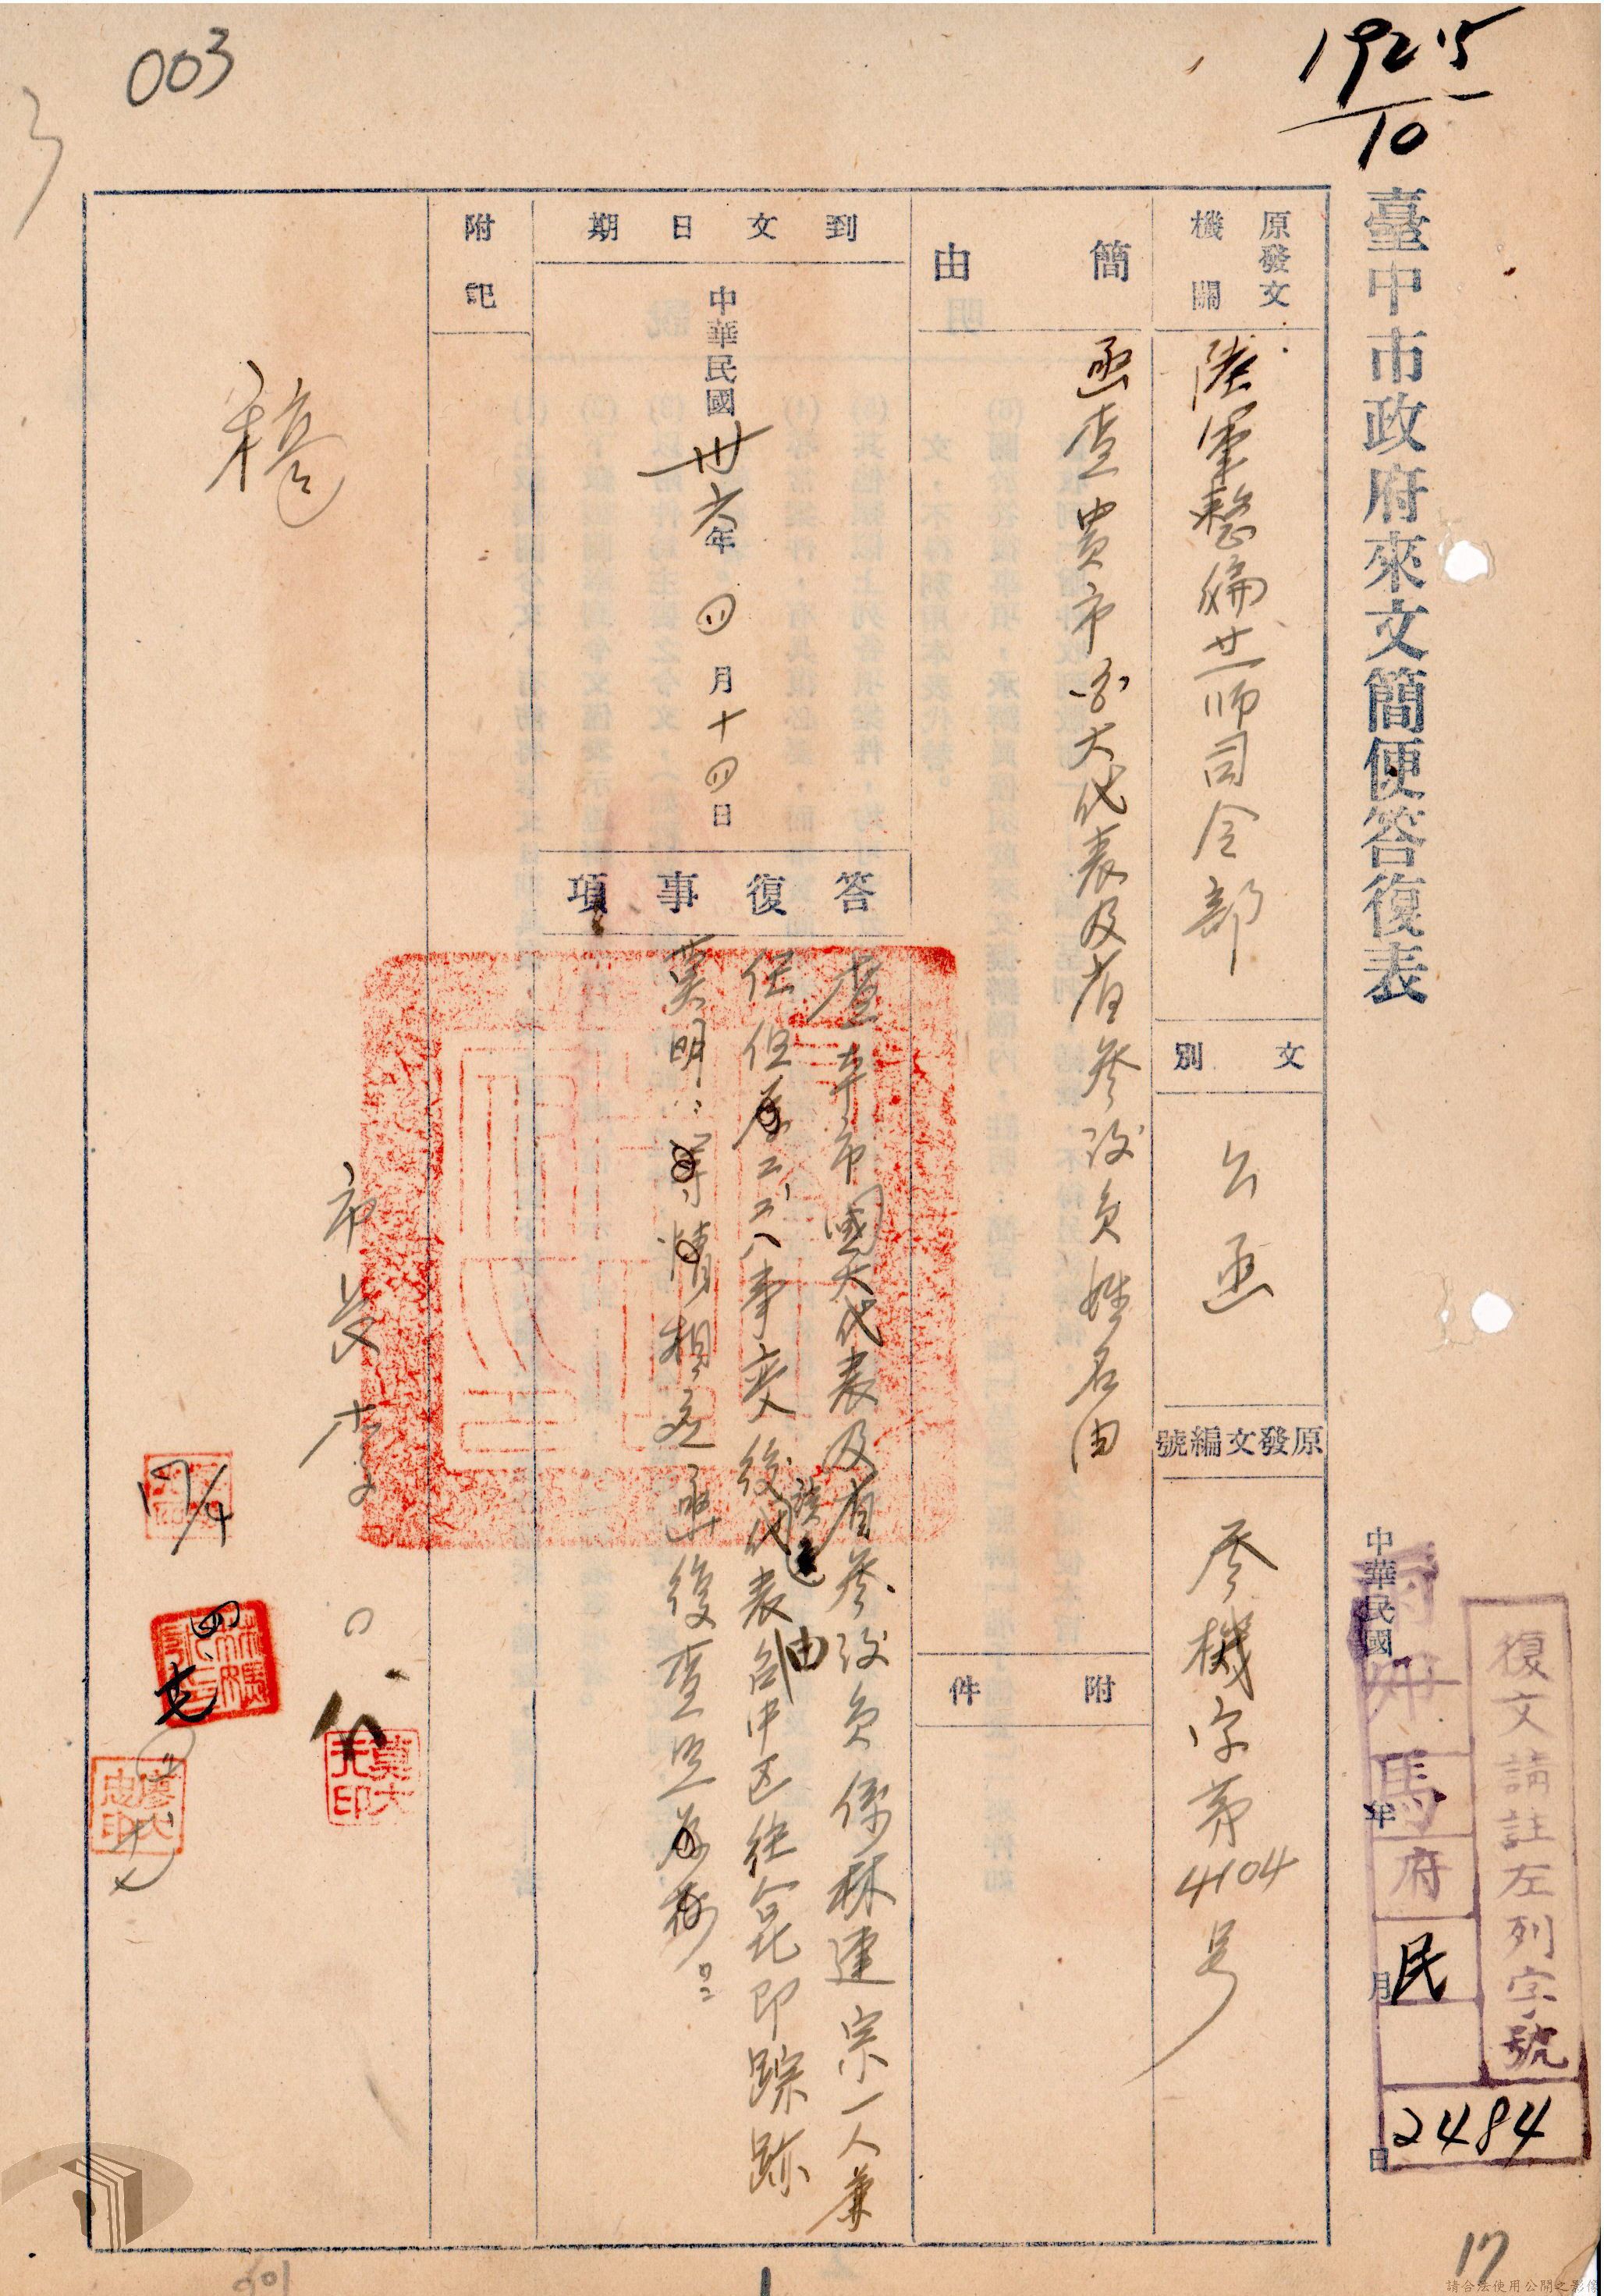 003
192.5
10
臺中市政府來文簡便答復表
中華民國 年 月 日
復文請註左列字號
府
民
2484
原發文機關
陸軍整編廿一師司令部
文別
公函
原發文編號
參機字第4104号
簡由
函查貴市國大代表及省參議員姓名由
附件
到文日期
中華民國卅六年四月十四日
答復事項
查本市國大代表及省參議員係林連宗一人兼
任但於二二八事變後代表台中區往台北即踪跡
莫明
相應函復查照為荷
附記
稿
市長李
17/4
四
17
請合法使用公開之影像